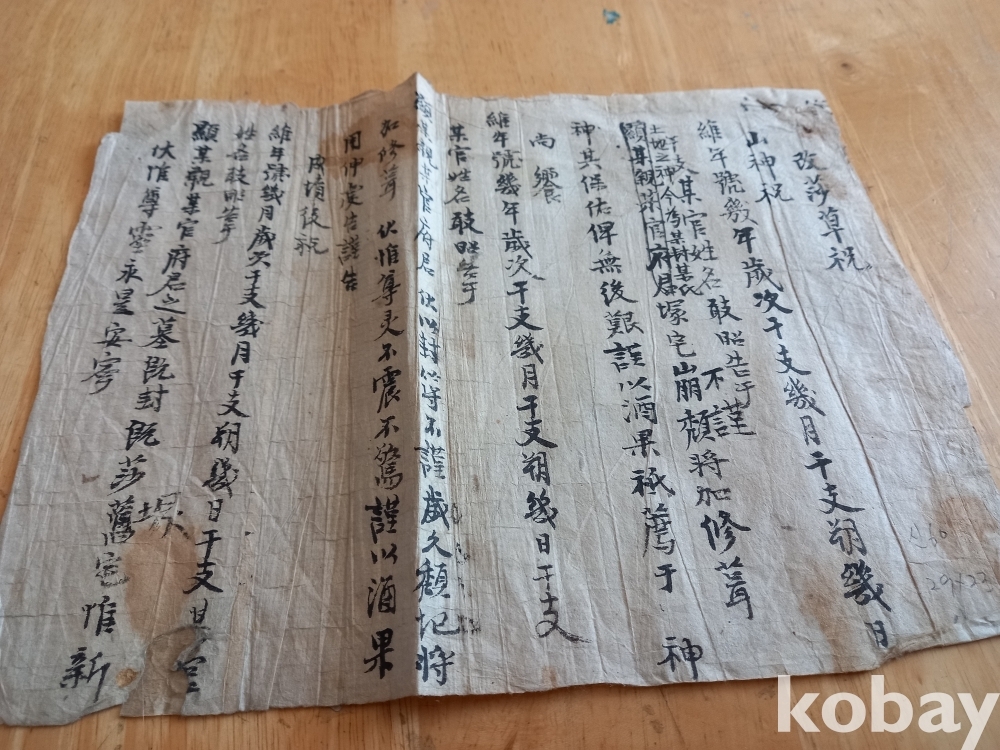 改莎草祝
山神祝
維年號幾年歲次干支幾月干支朔幾日
干支某官姓名敢昭告于
土地之神今爲某親某
顯某親某官府君塚宅崩頹將加修葺
不謹
神其保佑俾無後艱謹以酒果祗薦于 神
尚饗
維年號幾年歲次干支幾月干支朔幾日干支
某官姓名敢昭告于
顯某親某官府君 伏以封築不謹歲久頹圮將
加修葺 伏惟尊灵不震不驚謹以酒果
用伸虔告謹告
成墳後祝
維年號幾月歲次干支幾月干支朔幾日干支某官
姓名敢昭告于
顯某親某官府君之墓既封既莎舊宅惟新
伏惟尊靈永呈安寧
29×22
kobay